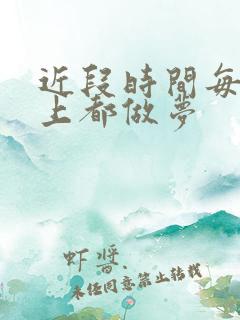 近段時間每
上都做夢
虾 - 酱
未经同意禁止转载